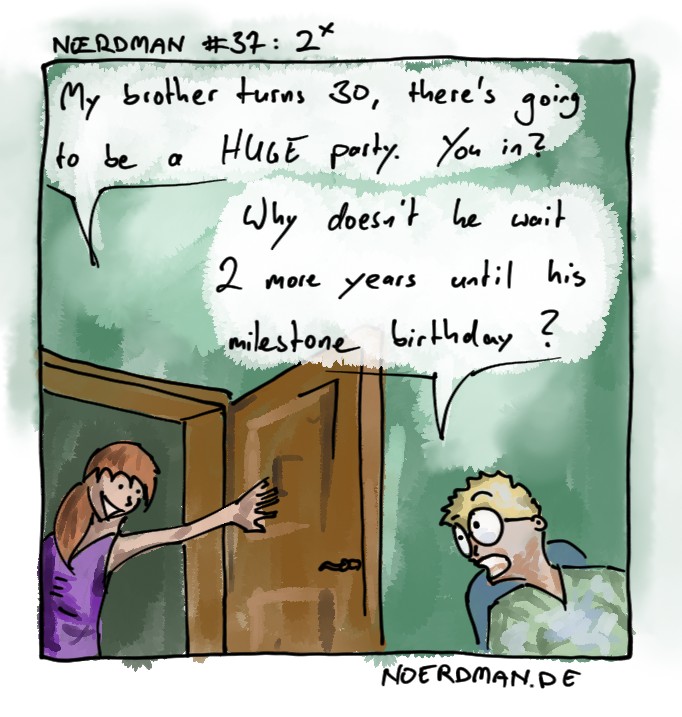 NŒRDMAN #37: 2ˣ
My brother turns 30, there's going
to be a HUGE party. You in?
Why doesn't he wait
2 more years until his
milestone birthday?
NOERDMAN.DE